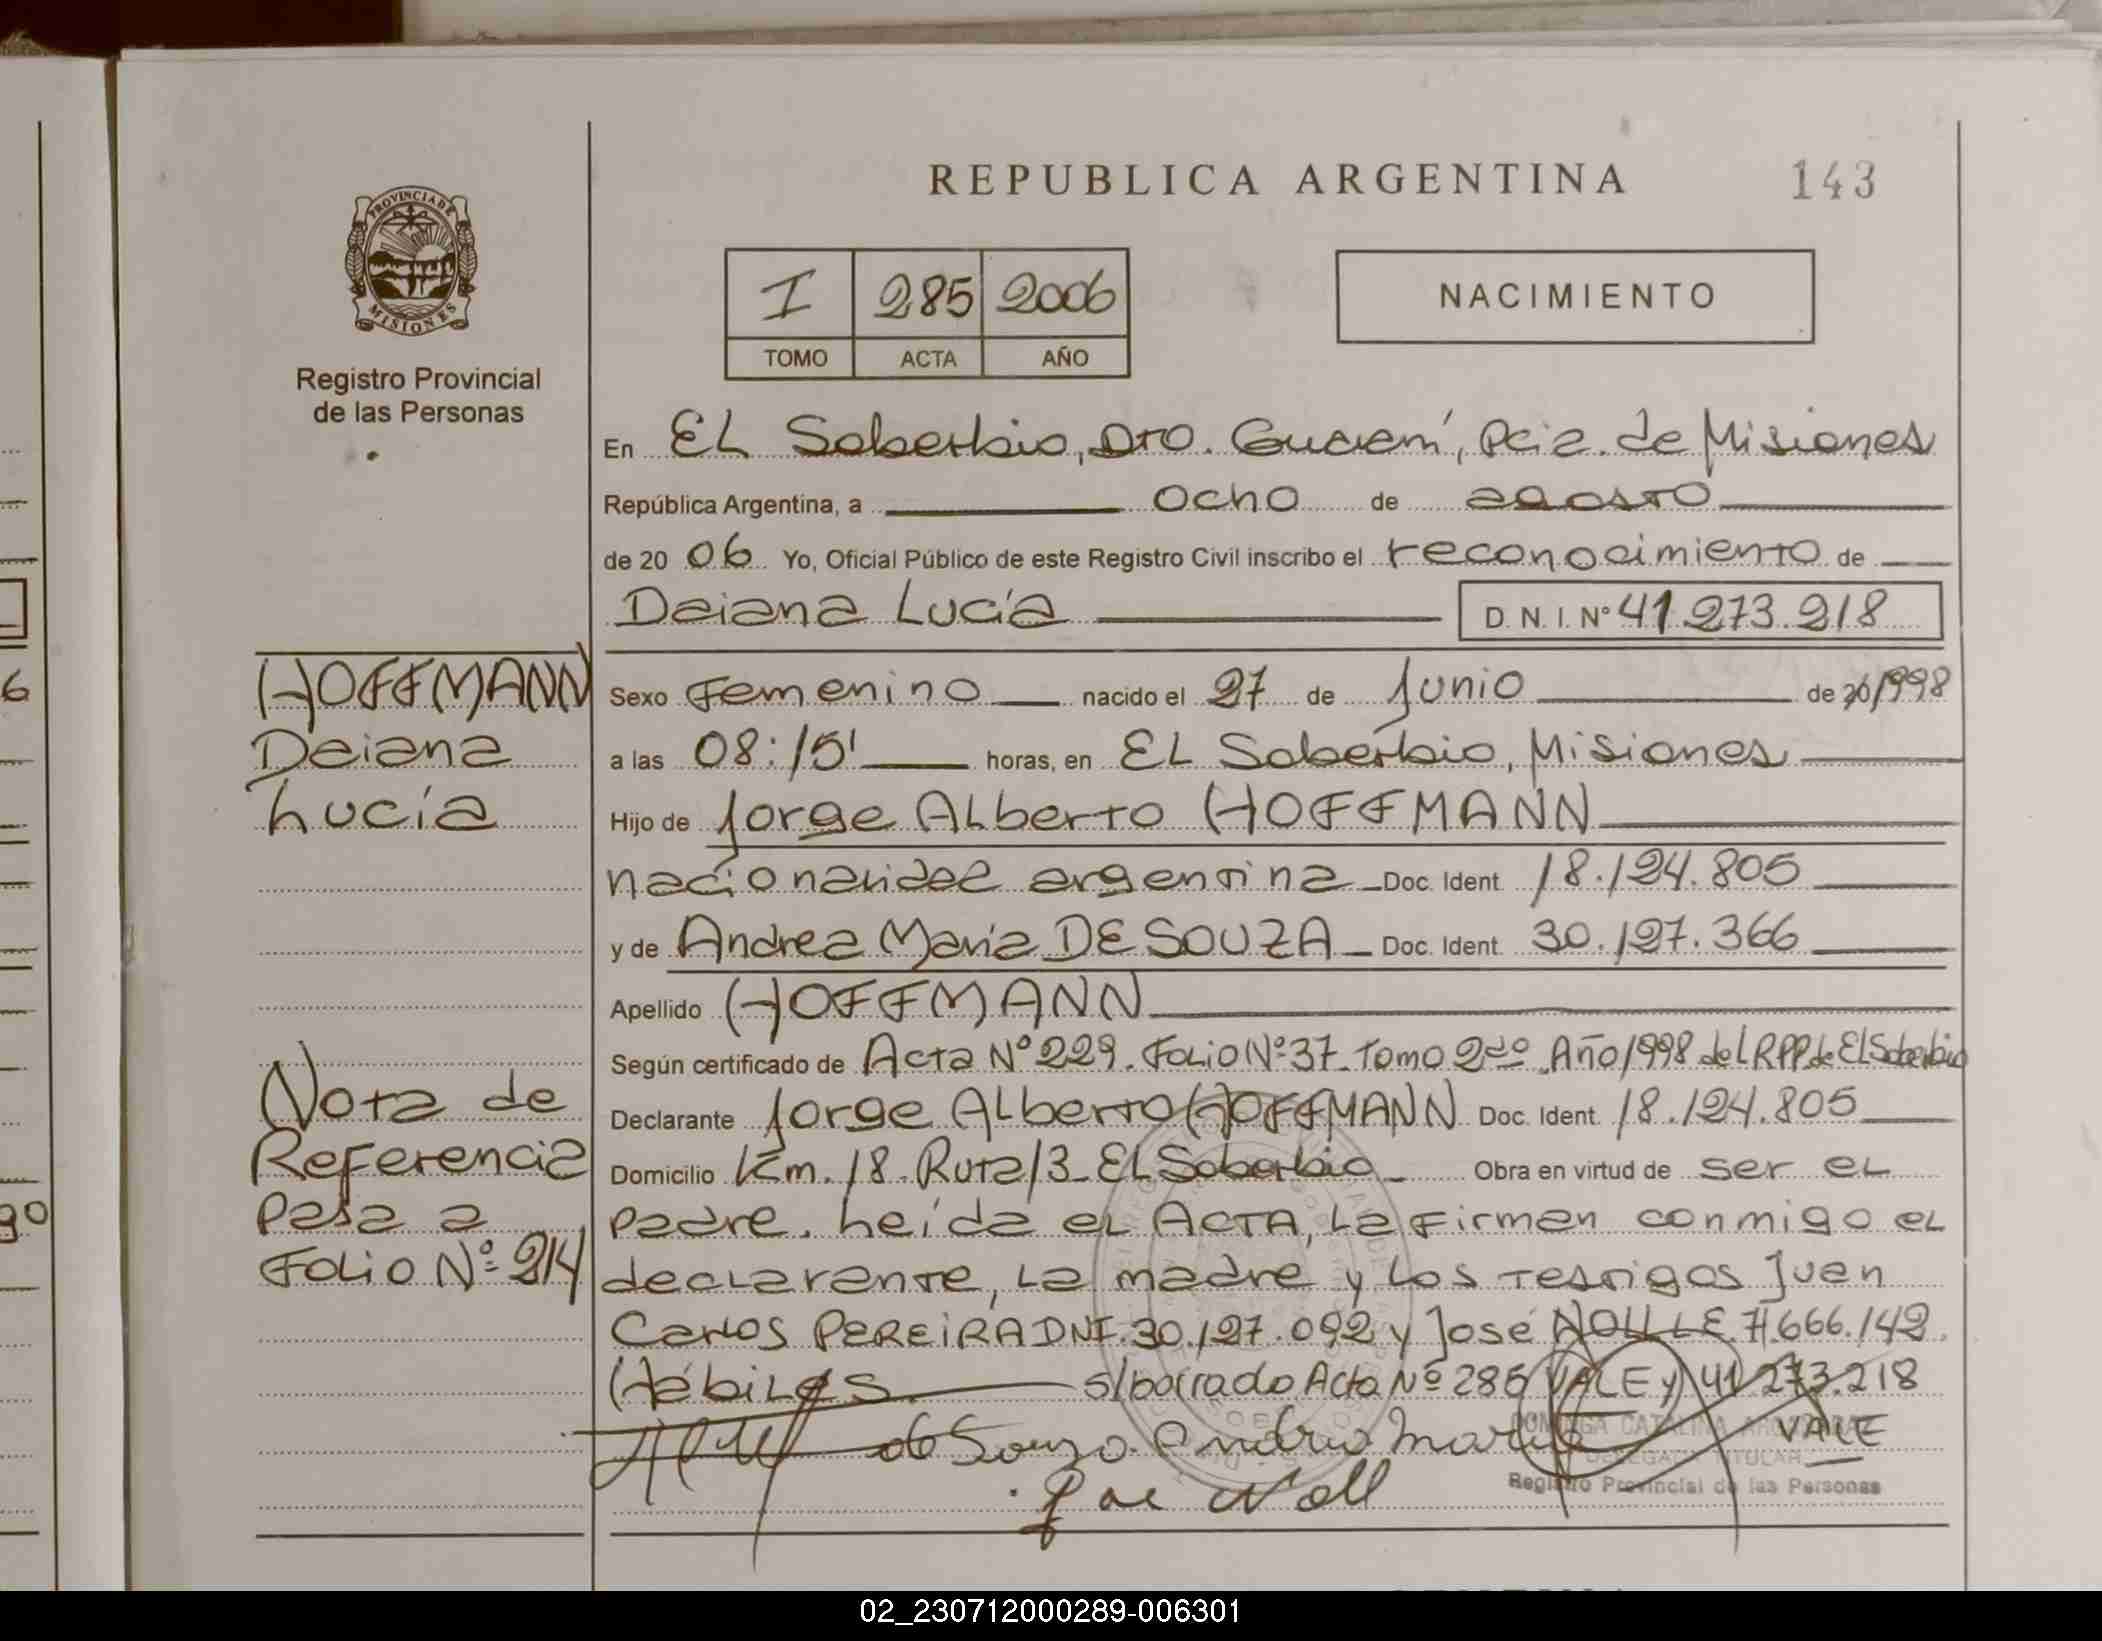 REPUBLICA ARGENTINA
143
PROVINCIA DE
MISIONES
Registro Provincial
de las Personas
I 285 2006
TOMO ACTA AÑO
NACIMIENTO
En EL Soberbio, Dto. Guaraní, Pcia. de Misiones
República Argentina, a ocho de agosto
de 20 06 Yo, Oficial Público de este Registro Civil inscribo el reconocimiento de
Daiana Lucía D. N. I. Nº 41.273.218
HOFFMANN
Daiana
Lucía
Sexo Femenino nacido el 27 de Junio de 1998
a las 08:15' horas, en EL Soberbio, Misiones
Hijo de Jorge Alberto HOFFMANN
nacionalidad argentina Doc. Ident. 18.124.805
y de Andrea María DE SOUZA Doc. Ident. 30.127.366
Apellido HOFFMANN
Según certificado de Acta Nº 229. Folio Nº 37. Tomo 2do. Año 1998 del RPP. de EL Soberbio
Declarante Jorge Alberto HOFFMANN Doc. Ident. 18.124.805
Domicilio Km. 18. Ruta 13 EL Soberbio Obra en virtud de ser el
padre. Leída el ACTA, la firman conmigo el
declarante, la madre y los testigos Juan
Carlos PEREIRA DNI. 30.127.092 y José 7.666.142.
Hábiles. s/borrado Acta Nº 285 VALE y 41.273.218
VALE
Nota de
Referencia
Pasa a
Folio Nº 214
de Souza Andrea Maria
Noll
DELEGADA TITULAR
Registro Provincial de las Personas
02_230712000289-006301